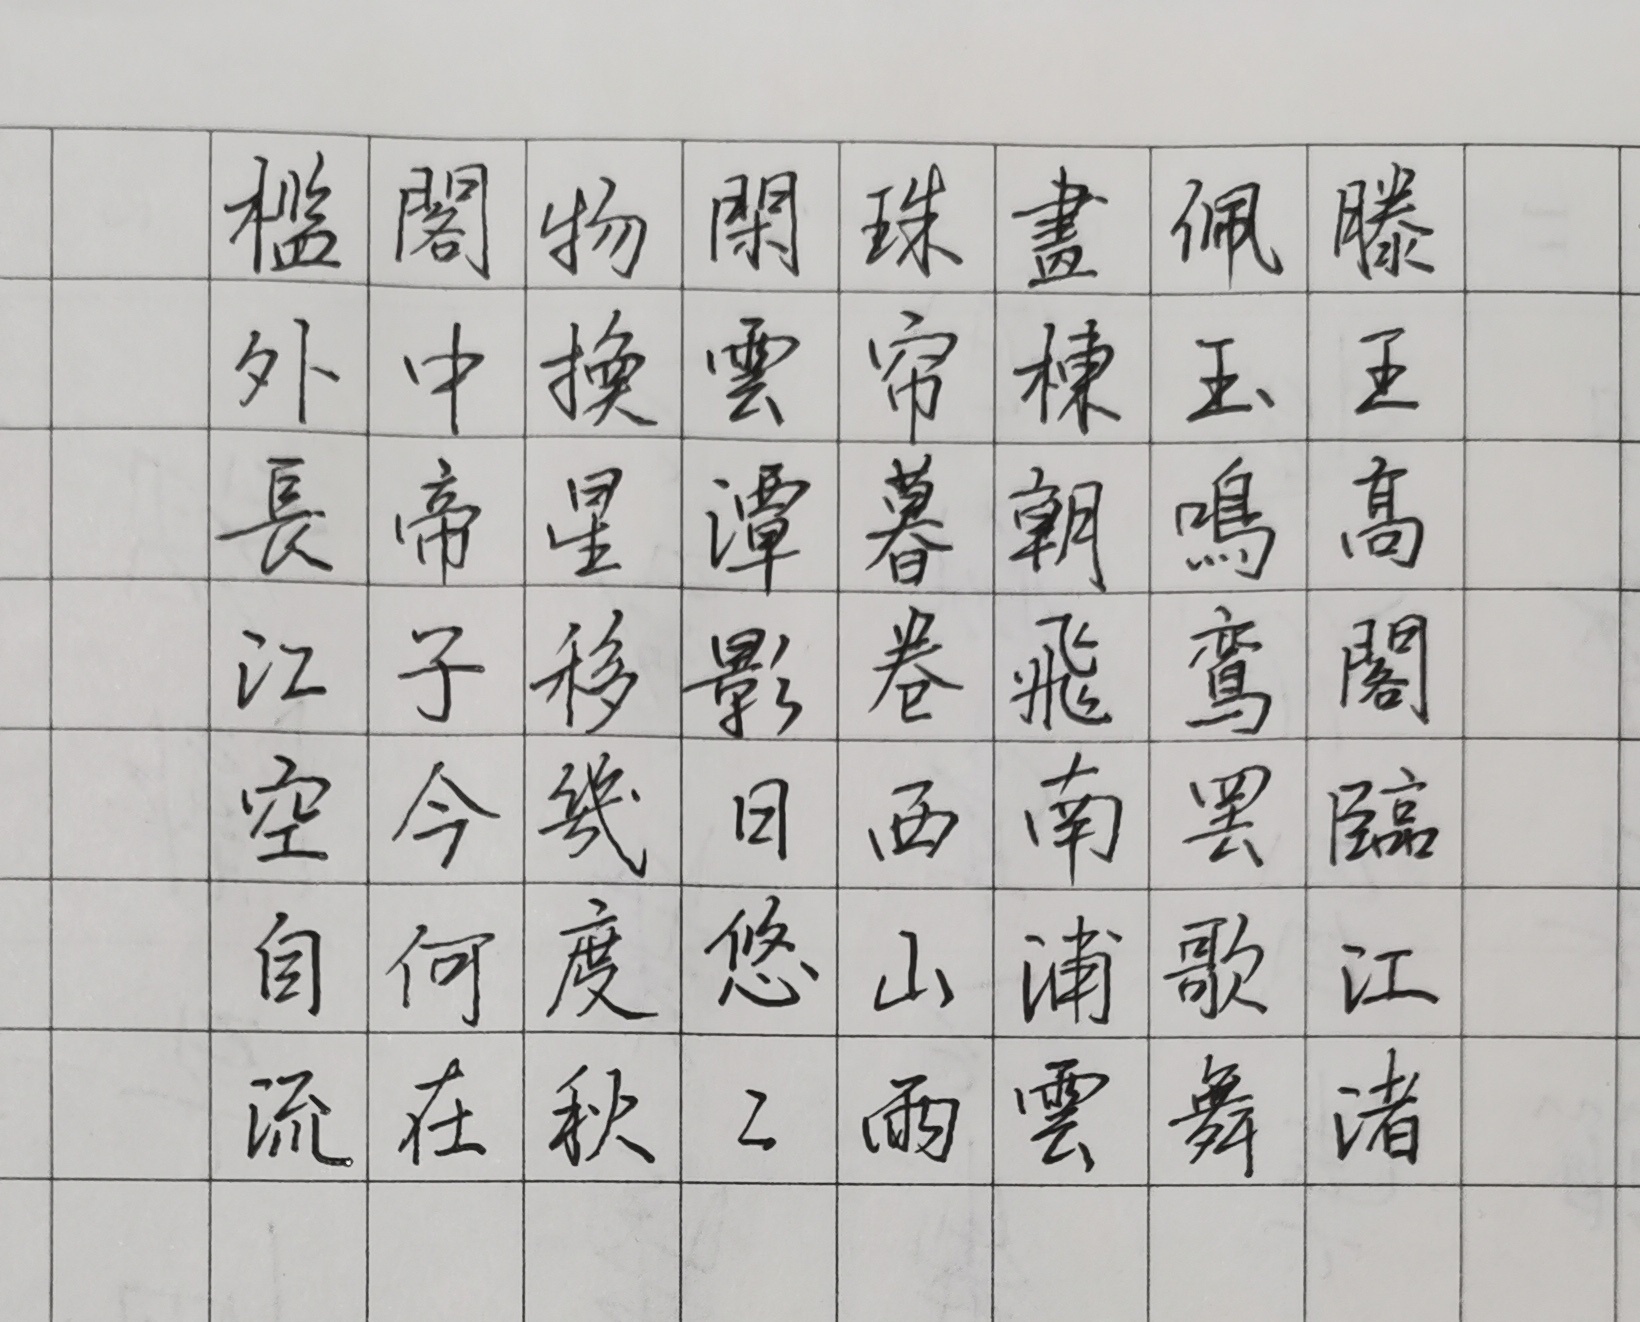 滕王高閣臨江渚
佩玉鳴鸞罢歌舞
畫棟朝飛南浦雲
珠帘暮卷西山雨
閑雲潭影日悠〻
物換星移幾度秋
閣中帝子今何在
檻外長江空自流